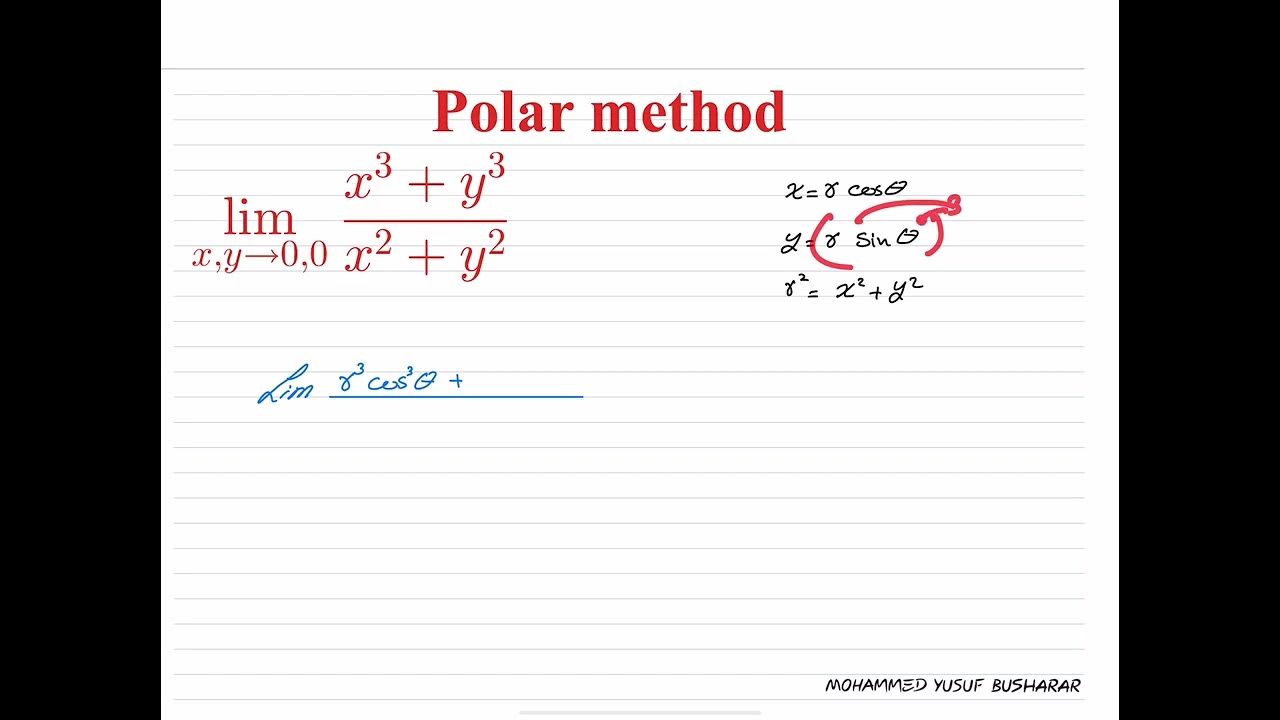 Polar method
lim x,y→0,0 x³ + y³ / x² + y²
x = r cosθ
y = (r sin θ)³
r² = x² + y²
Lim r³ cos³θ +
MOHAMMED YUSUF BUSHARAR